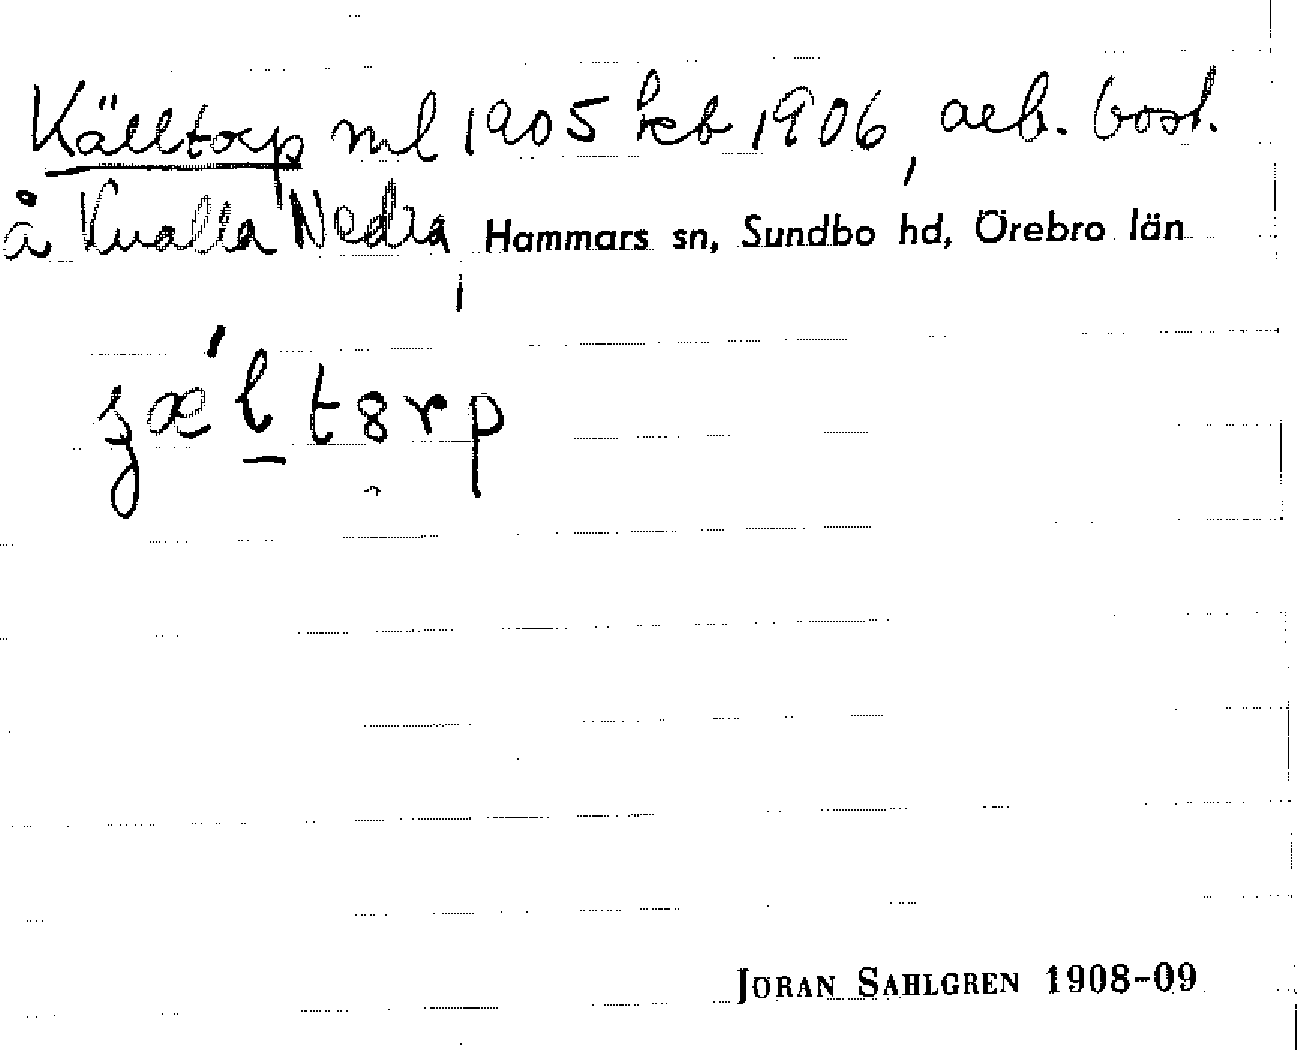 Källtorp ml 1905 kb 1906, arb. bost.
å Kvalla Nedra, Hammars sn, Sundbo hd, Örebro län
ʒǽl̠ t8rp
JÖRAN SAHLGREN 1908-09